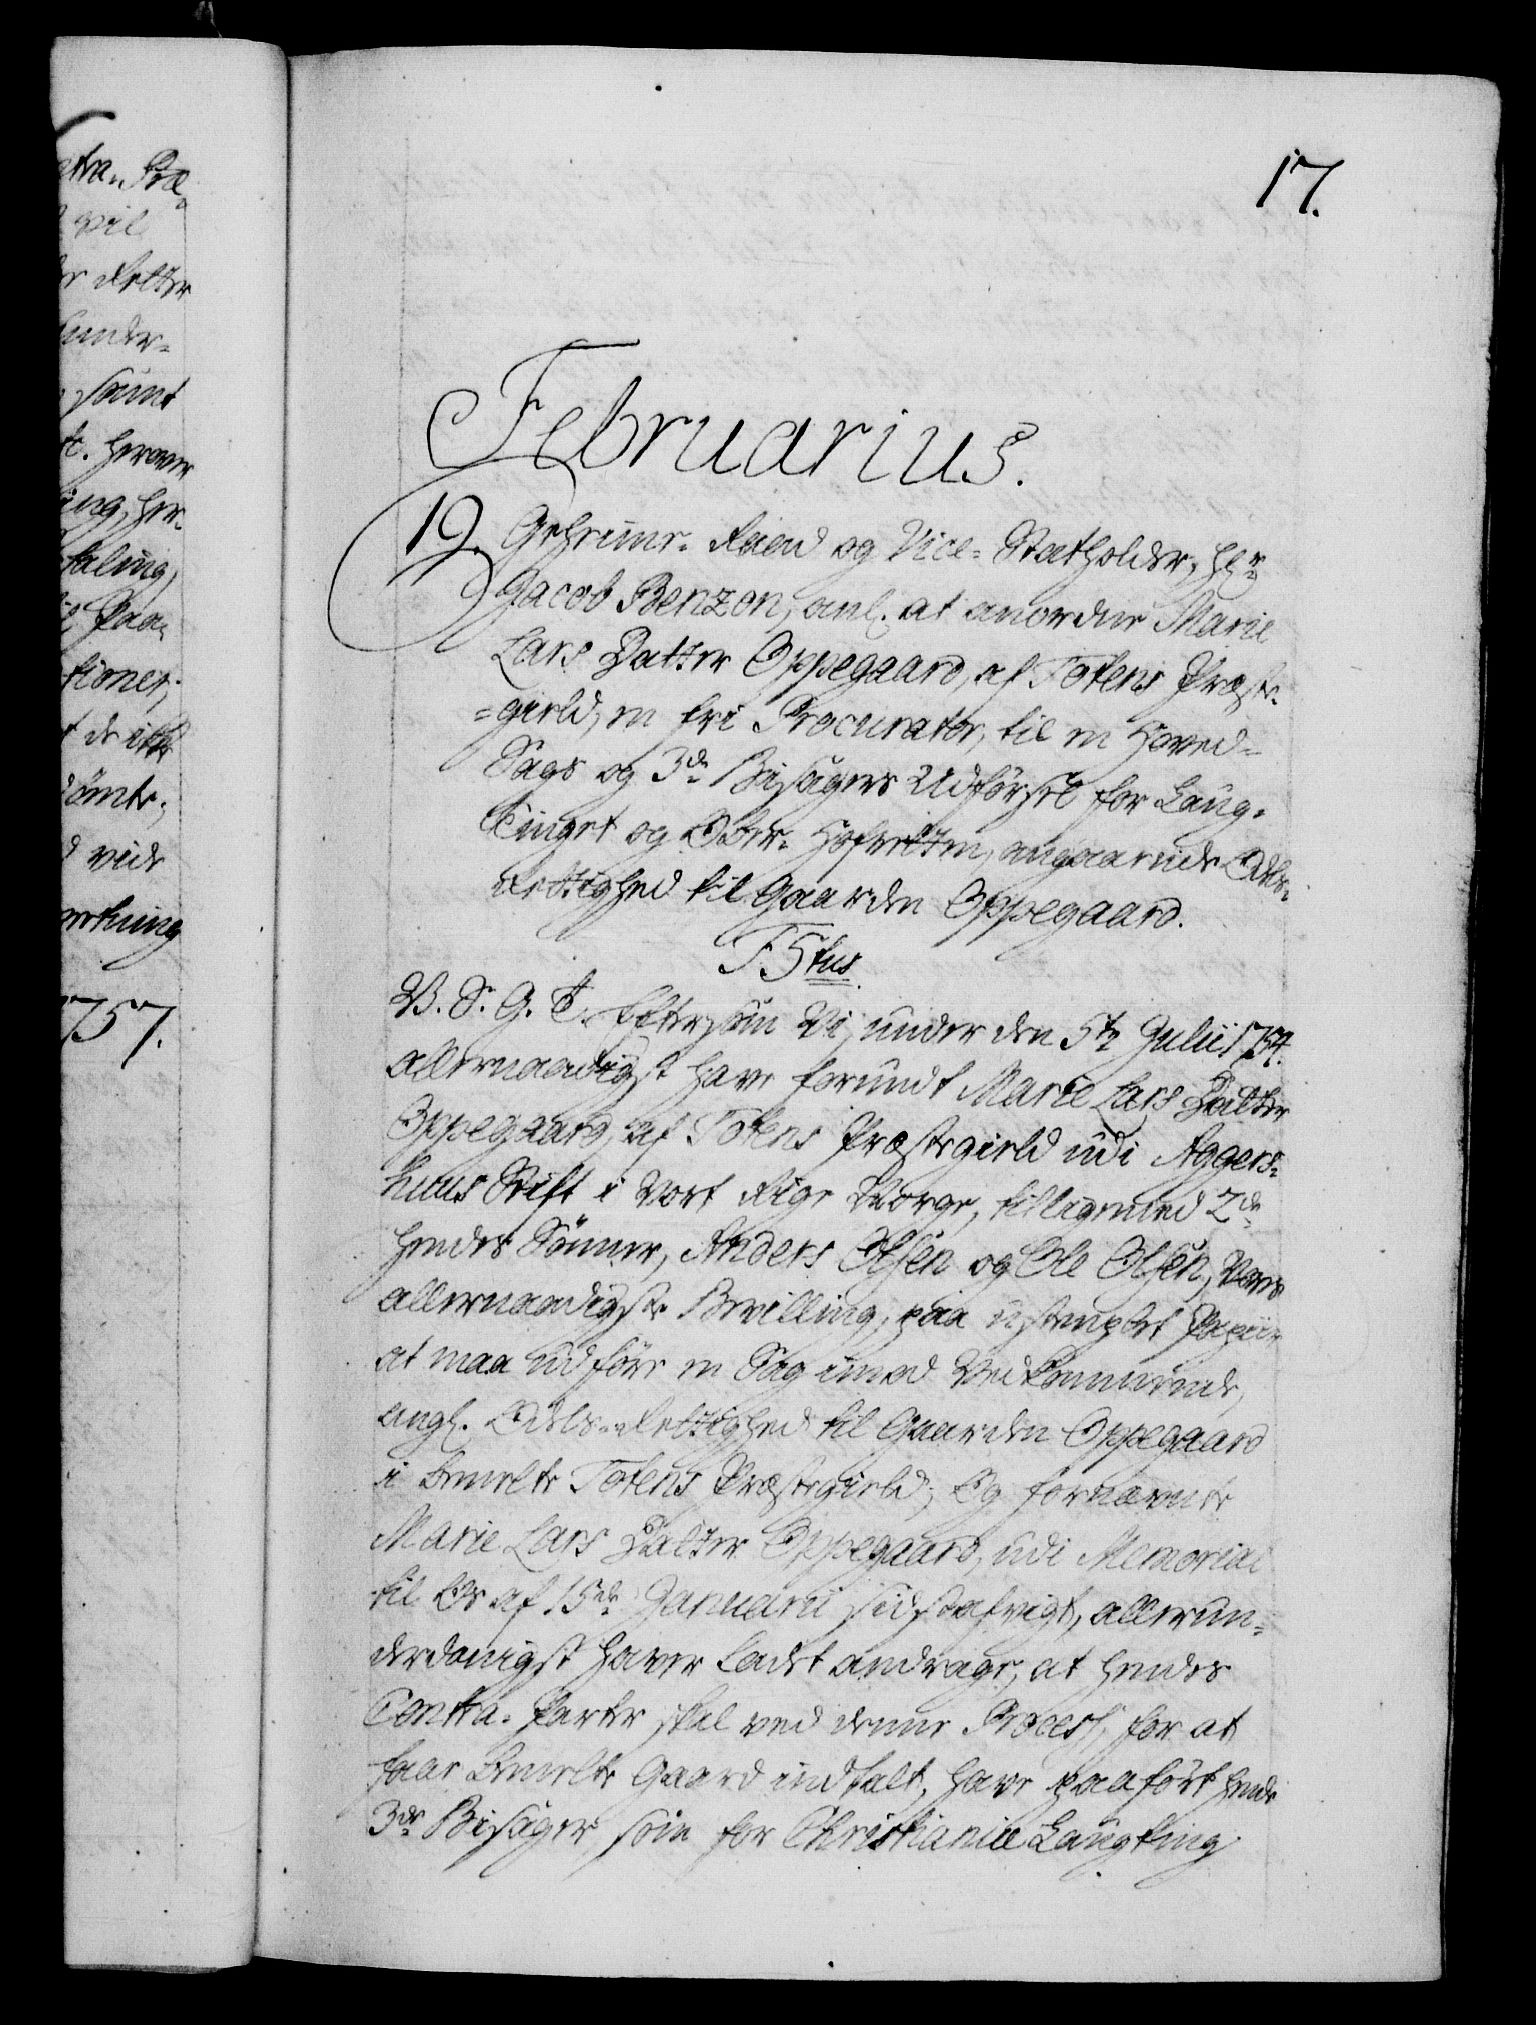 17.
Februarius.
19. Geheime-Raad og Vice-Statholder, Hr
Jacob Benzon, anl. at anordne Marie
Lars Datter Oppegaard, af Totens Præste-
=gield, en fri Procurator, til en Hoved-
Sags og 3de Bisagers Udförsel for Laug-
Tinget og Ober-Hofretten, angaaende Odels-
Rettighed til Gaarden Oppegaard.
F5tus.
V. S. G. T. Eftersom Vi, under den 5te Julii 1754.
allernaadigst have forundt Marie Lars Datter
Oppegaard, af Totens Præstegield udi Aggers-
huus Stift i Vort Rige Norge, tilligemed 2de
hendes Sönner, Anders Olsen og Ole Olsen, Vores
allernaadigste Bevilling, paa ustemplet Papiir
at maa udföre en Sag imod Vedkommende,
angl. Odels-Rettighed til Gaarden Oppegaard
i bemelte Totens Præstegield; Og fornævnte
Marie Lars Datter Oppegaard, udi Memorial
til Os af 15de Januarii sidstafvigt, allerun-
derdanigst haver ladet andrage, at hendes
Contra-Parter skal ved denne Process, for at
faae bemelte Gaard indtalt, have paaført hende
3de Bisager, som for Christianiæ Laugting
atra-Præ
vil
Retter
under-
samt
herover
ing, her-
taling,
Paa-
tioner,
t de ikke
dömte;
d vide
ertning
757.